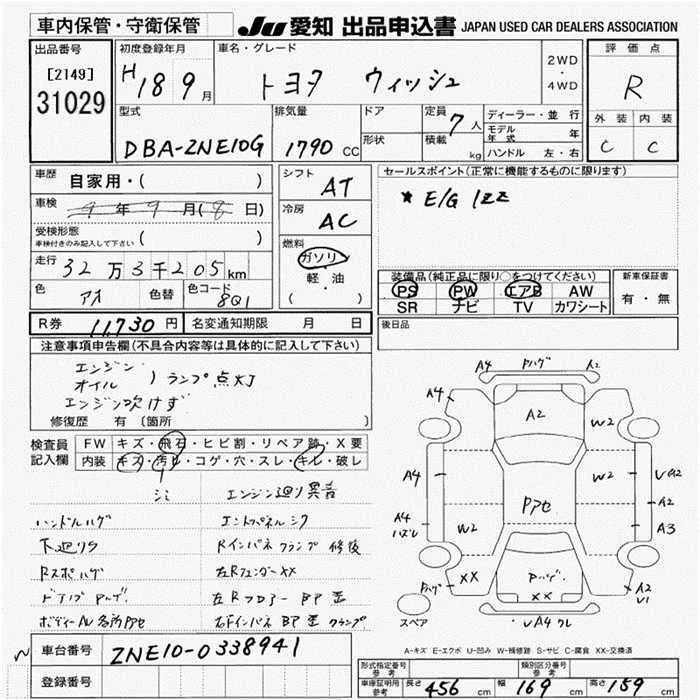 車内保管・守衛保管
JU 愛知 出品申込書 JAPAN USED CAR DEALERS ASSOCIATION
出品番号
[2149]
31029
初度登録年月
H18 9月
車名・グレード
トヨタ ウィッシュ
2WD
・
4WD
評価点
R
外装 内装
C C
型式
DBA-ZNE10G
排気量
1790 CC
ドア
形状
定員 7人
積載 kg
ディーラー・並行
モデル年式 年
ハンドル 左・右
車歴 自家用・( )
車検 9年9月(8日)
受検形態
車検付きのみ記入して下さい ( )
走行 32万3千205km
色 アオ 色替 色コード 8Q1
シフト AT
冷房 AC
燃料
ガソリン
軽・油
( )
セールスポイント(正常に機能するものに限ります)
* E/G 1ZZ
装備品(純正品に限り○をつけてください)
PS PW エアB AW
SR ナビ TV カワシート
新車保証書
有・無
R券 11,730円 名変通知期限 月 日
後日品
注意事項申告欄(不具合内容等は具体的に記入して下さい)
エンジン
オイル ) ランプ点灯
エンジン吹けず
修復歴 有 [箇所 ]
検査員記入欄
FW キズ・飛石・ヒビ割・リペア跡・X要
内装 キズ・汚れ・コゲ・穴・スレ・キレ・破レ
シミ エンジン廻り異音
ハンドルハゲ
下廻りS
Rインパネ クランプ 修後
Rスポハゲ 左RフェンダーXX
左Rフロアー
車台番号 ZNE10-0338941
登録番号
A4 A2
A4 A2 W2
A4 W2 UA2
A2
A4 W2 A3
Pアセ
XX XX A2
U1
スペア
A-キズ E-エクボ U-凹み W-補修跡 S-サビ C-腐食 XX-交換済
形式指定番号 参考 類別区分番号 参考
車庫証明用参考 長さ 456 cm 幅 169 cm 高さ 159 cm